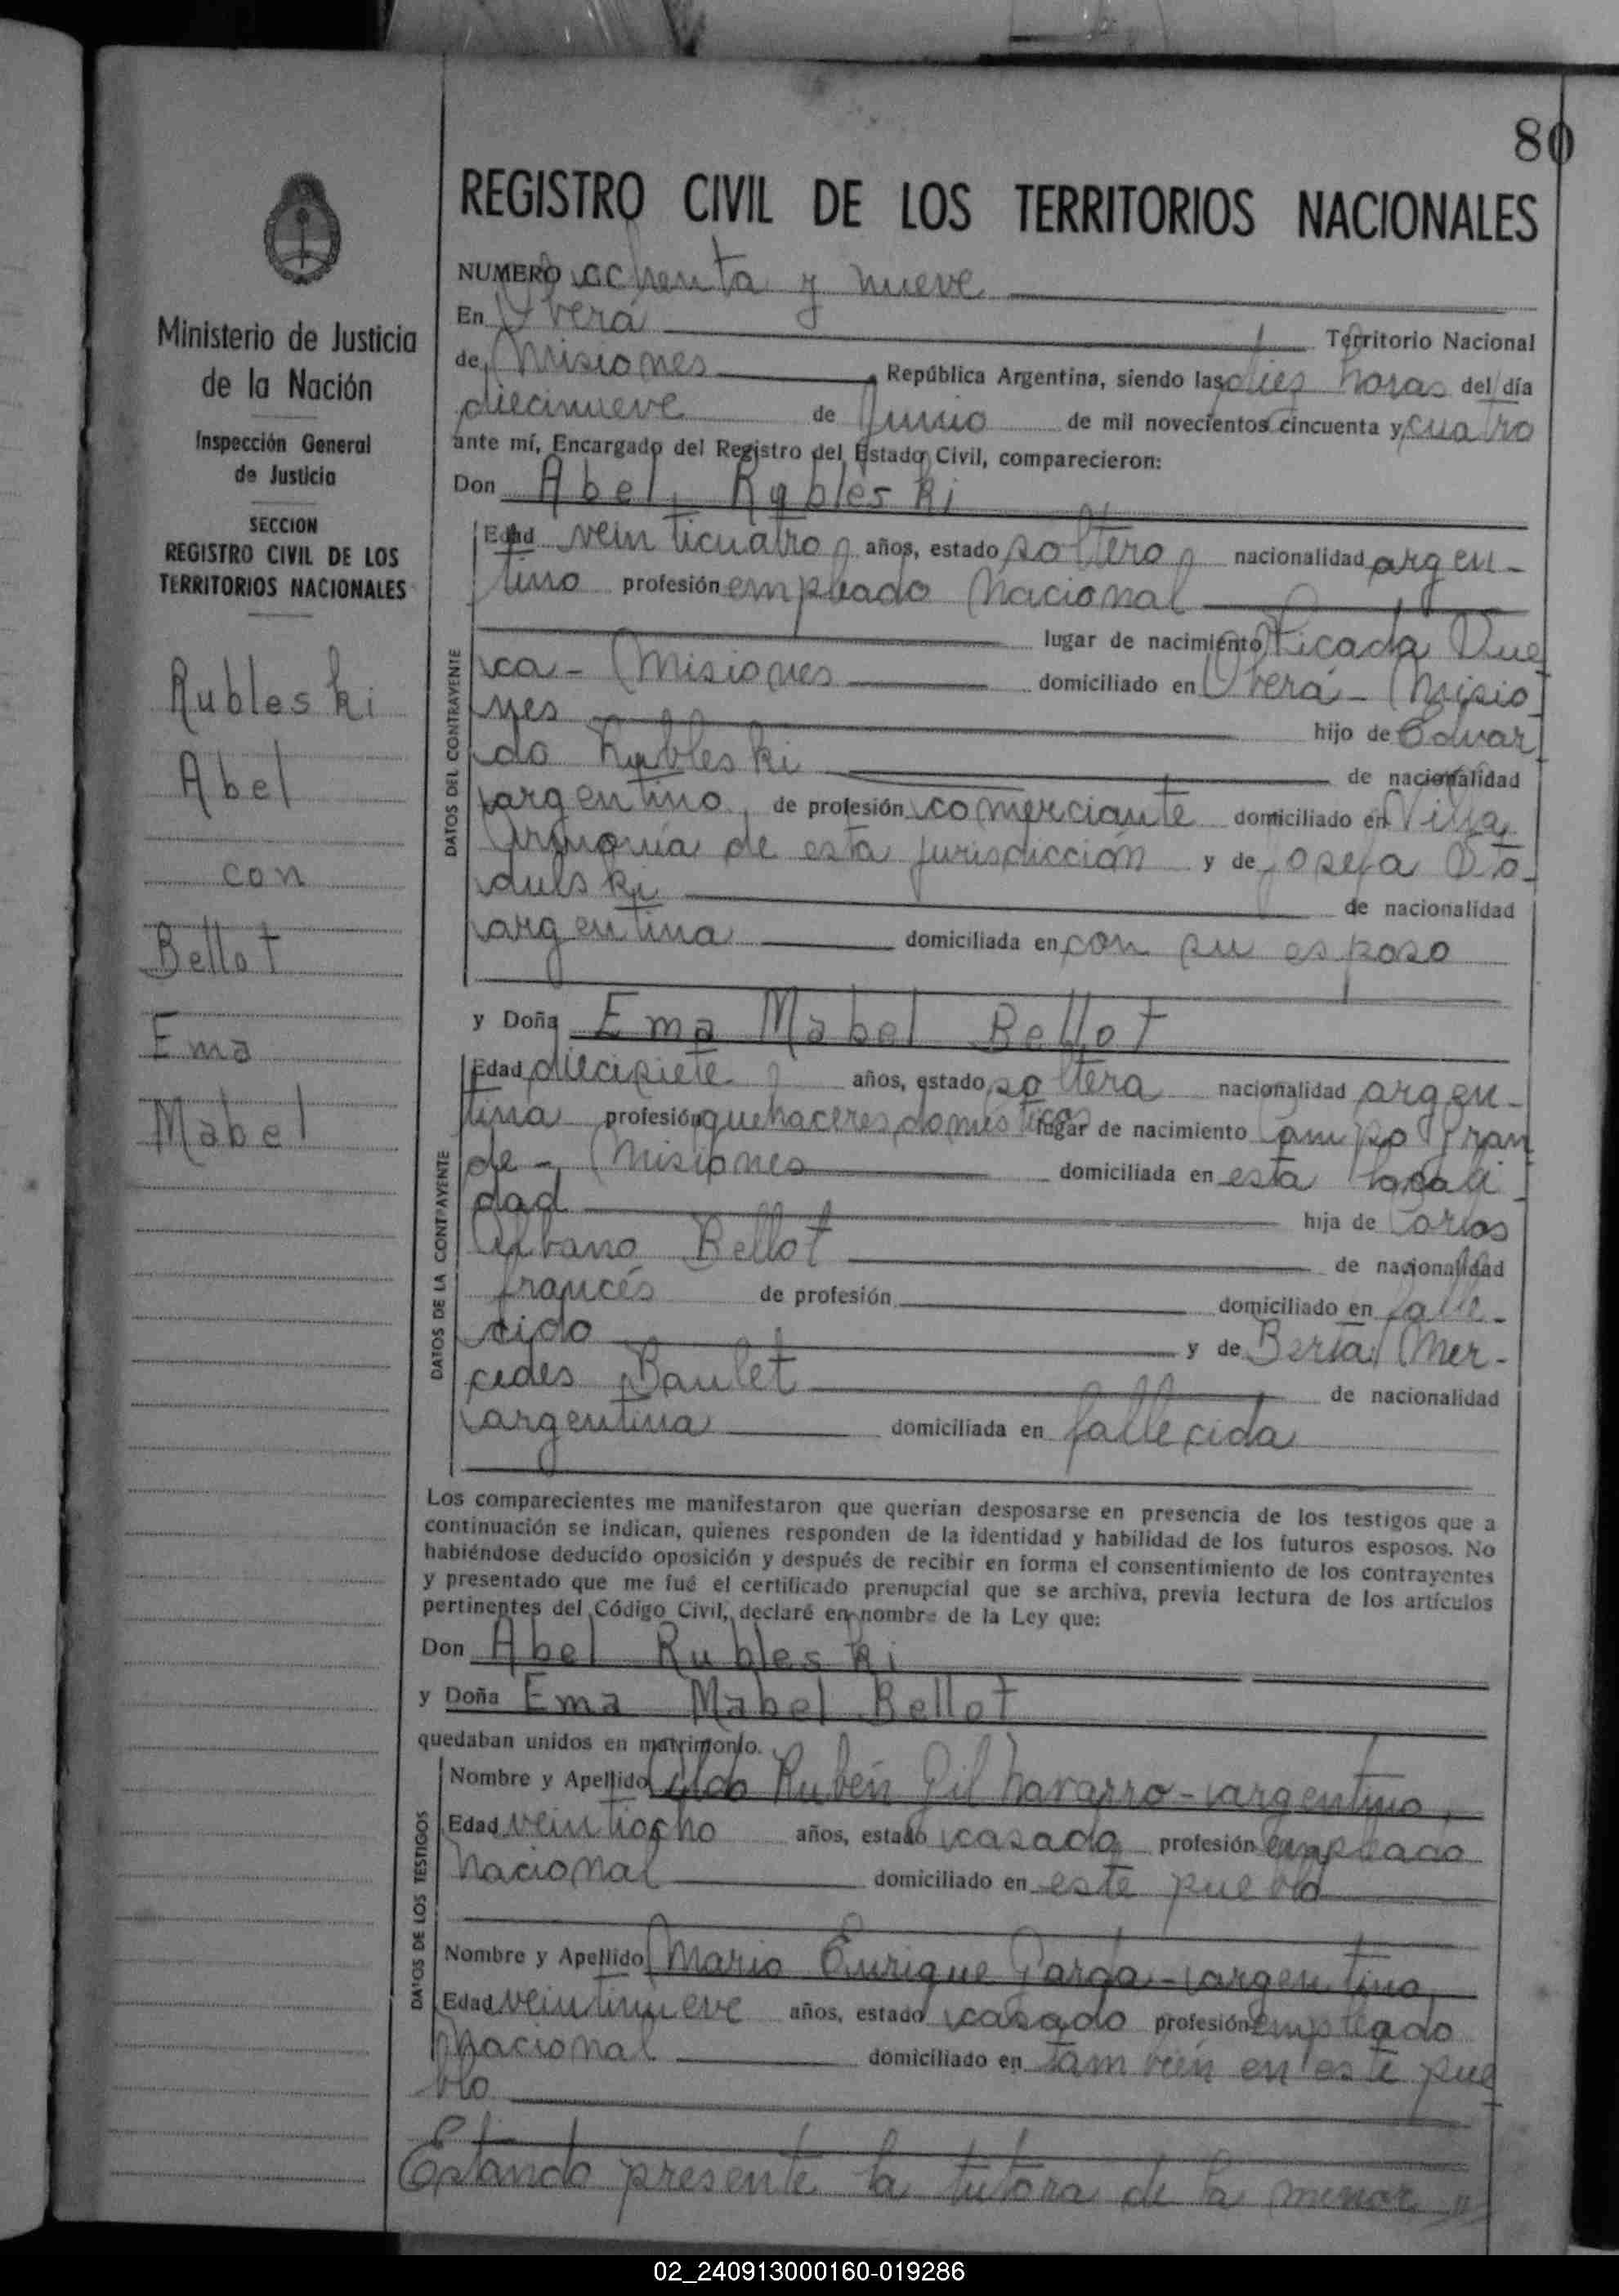 80
REGISTRO CIVIL DE LOS TERRITORIOS NACIONALES
Ministerio de Justicia
de la Nación
Inspección General
de Justicia
SECCION
REGISTRO CIVIL DE LOS
TERRITORIOS NACIONALES
Rubleski
Abel
con
Bellot
Ema
Mabel
NUMERO ochenta y nueve
En Oberá Territorio Nacional
de Misiones, República Argentina, siendo las diez horas del día
diecinueve de Junio de mil novecientos cincuenta y cuatro
ante mí, Encargado del Registro del Estado Civil, comparecieron:
Don Abel Rubleski
DATOS DEL CONTRAYENTE
Edad veinticuatro años, estado soltero, nacionalidad argen-
tino profesión empleado Nacional
lugar de nacimiento Picada Sue
ca - Misiones domiciliado en Oberá - Misio
nes hijo de Eduar
do Rubleski de nacionalidad
argentino, de profesión comerciante domiciliado en Villa
Armonía de esta jurisdicción y de Josefa
de nacionalidad
argentina domiciliada en con su esposo
y Doña Ema Mabel Bellot
DATOS DE LA CONTRAYENTE
Edad diecisiete años, estado soltera nacionalidad argen-
tina profesión quehaceres domésticos lugar de nacimiento Campo Gran
de - Misiones domiciliada en esta locali
dad hija de Carlos
Urbano Bellot de nacionalidad
francés de profesión domiciliado en falle-
cido y de Berta Mer-
cedes Baulet de nacionalidad
argentina domiciliada en fallecida
Los comparecientes me manifestaron que querían desposarse en presencia de los testigos que a
continuación se indican, quienes responden de la identidad y habilidad de los futuros esposos. No
habiéndose deducido oposición y después de recibir en forma el consentimiento de los contrayentes
y presentado que me fué el certificado prenupcial que se archiva, previa lectura de los artículos
pertinentes del Código Civil, declaré en nombre de la Ley que:
Don Abel Rubleski
y Doña Ema Mabel Bellot
quedaban unidos en matrimonio.
DATOS DE LOS TESTIGOS
Nombre y Apellido Aldo Rubén Gil Navarro - argentino,
Edad veintiocho años, estado casado profesión empleado
Nacional domiciliado en este pueblo
Nombre y Apellido Mario Enrique - argentino,
Edad veintinueve años, estado casado profesión empleado
Nacional domiciliado en también en este pue
blo
Estando presente la tutora de la menor
02_240913000160-019286